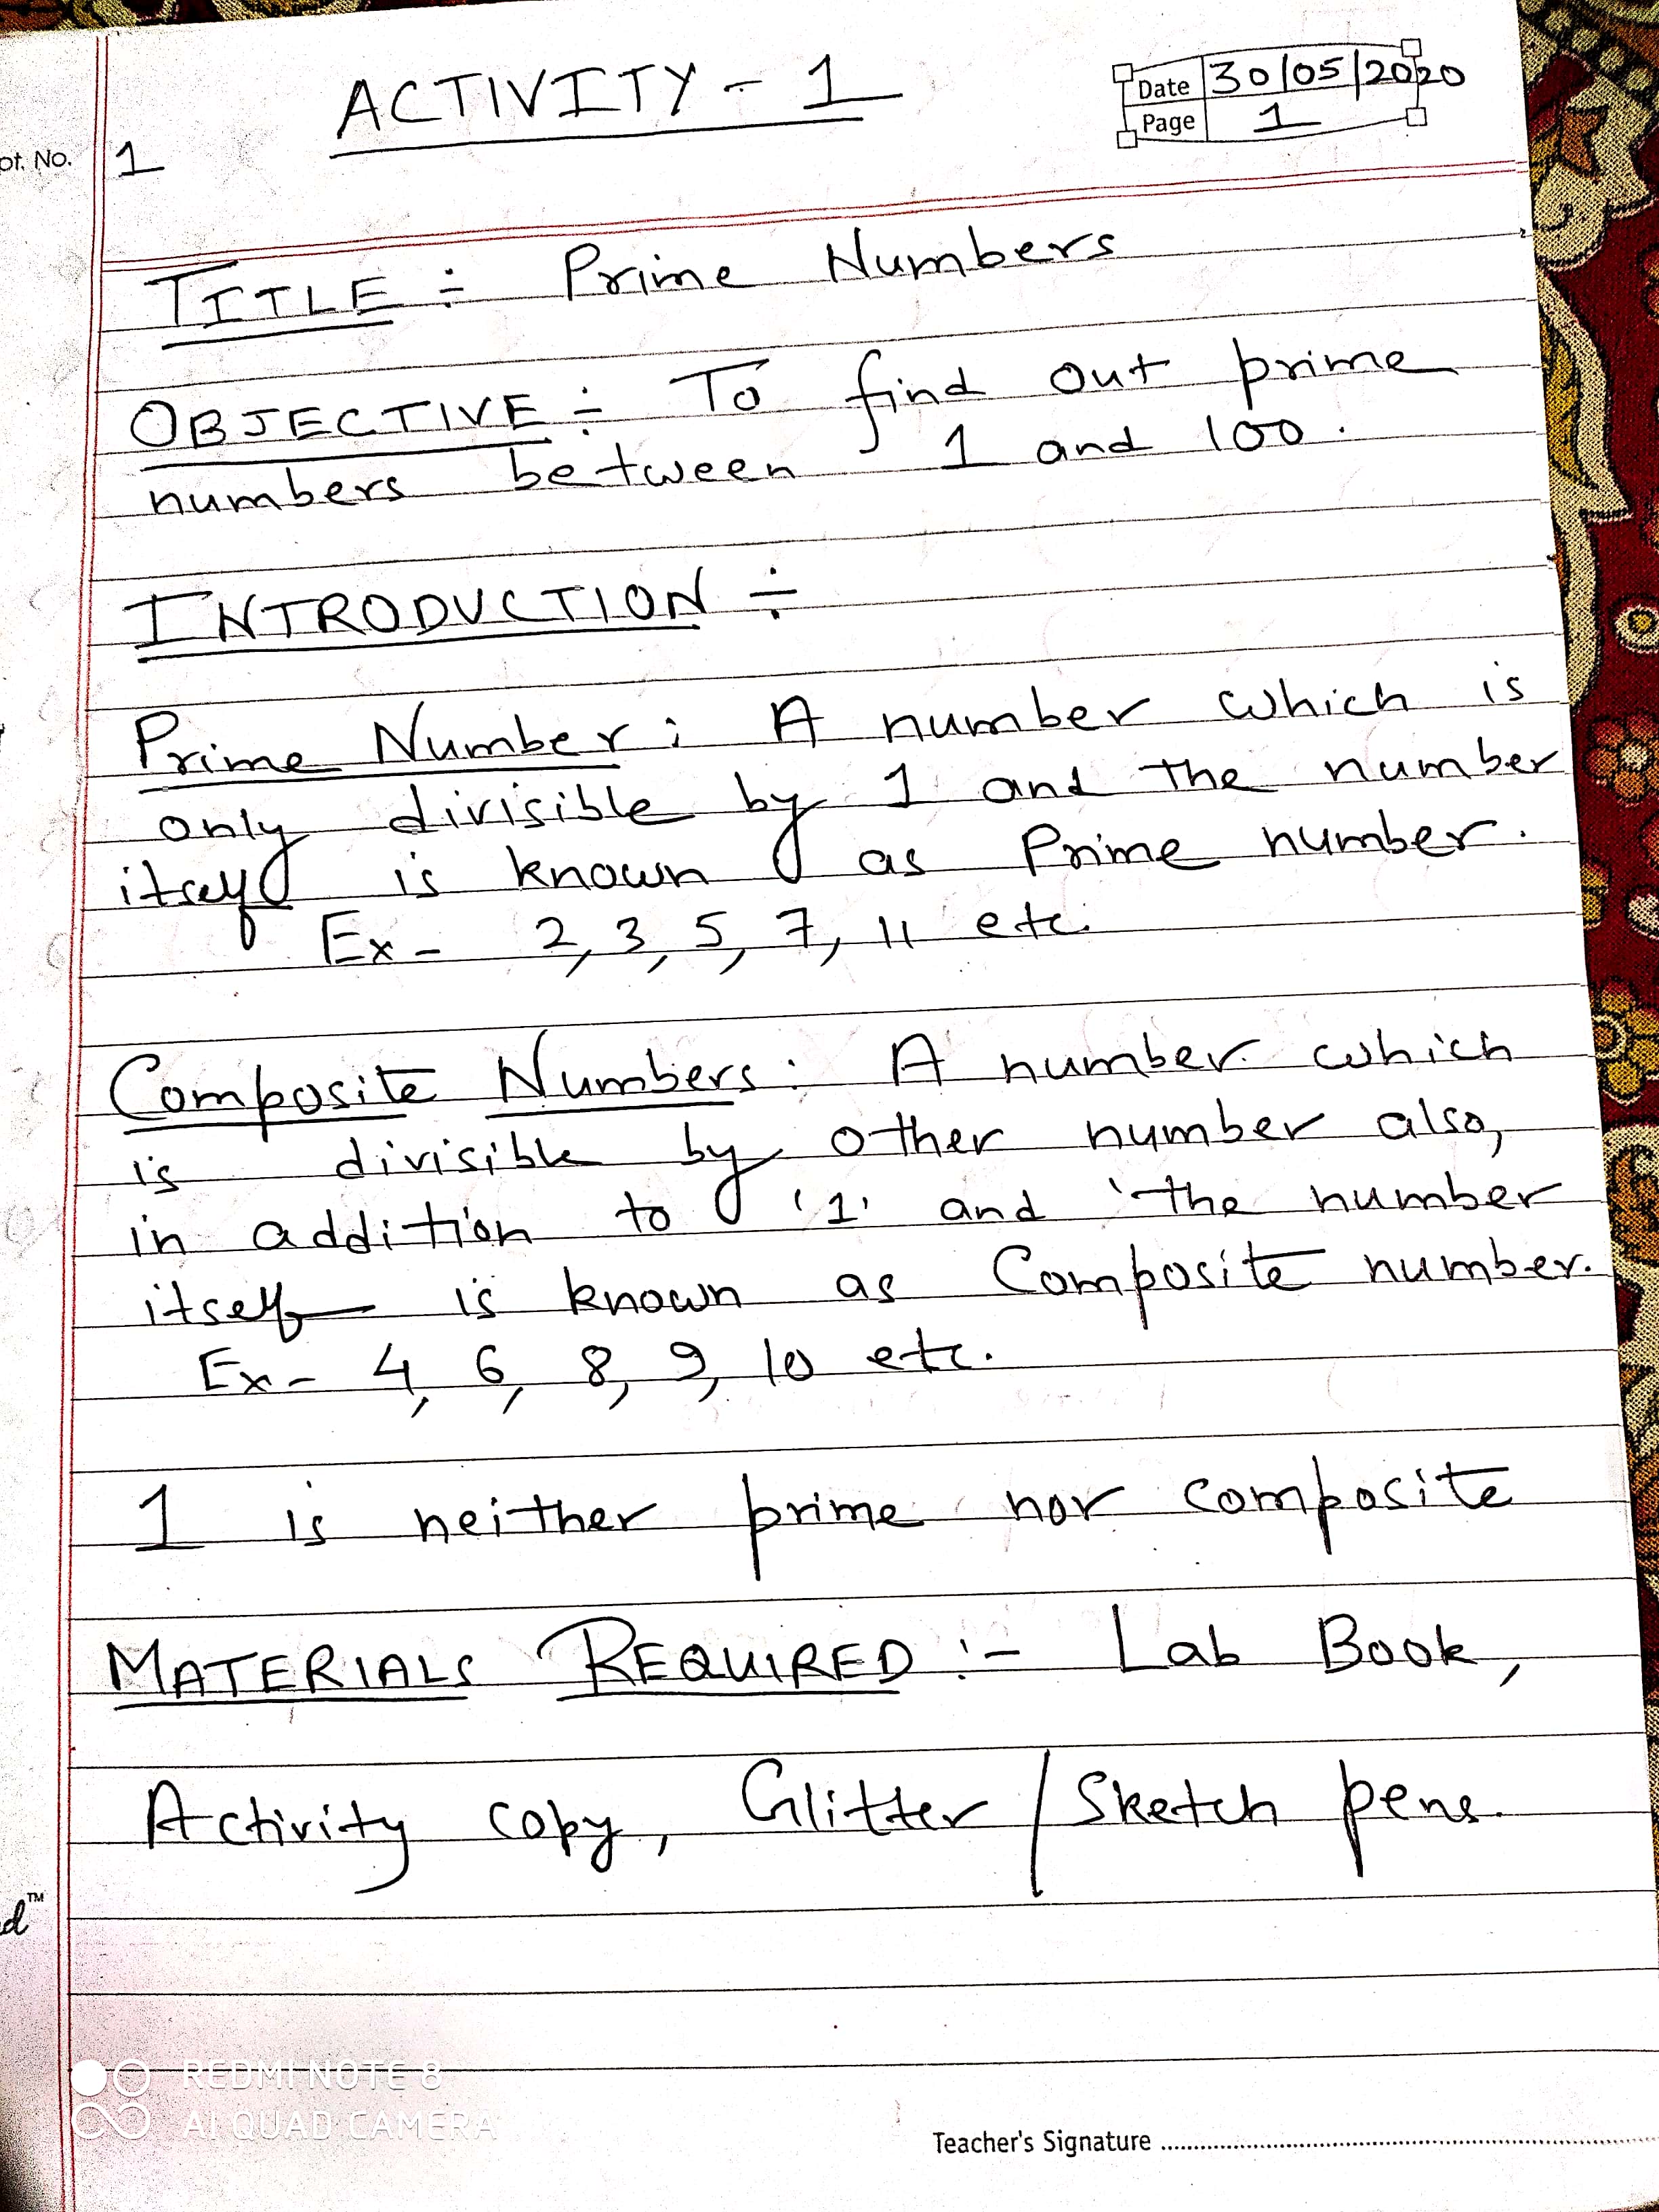 ACTIVITY - 1
Date 30/05/2020
Page 1
pt. No. 1
TITLE :- Prime Numbers
OBJECTIVE :- To find out prime
numbers between 1 and 100.
INTRODUCTION :-
Prime Number : A number which is
only divisible by 1 and the number
itself is known as Prime number.
Ex - 2, 3, 5, 7, 11 etc.
Composite Numbers : A number which
is divisible by other number also,
in addition to '1' and 'the number
itself is known as Composite number.
Ex - 4, 6, 8, 9, 10 etc.
1 is neither prime nor composite
MATERIALS REQUIRED :- Lab Book,
Activity copy, Glitter / Sketch pens.
d™
REDMI NOTE 8
AI QUAD CAMERA
Teacher's Signature